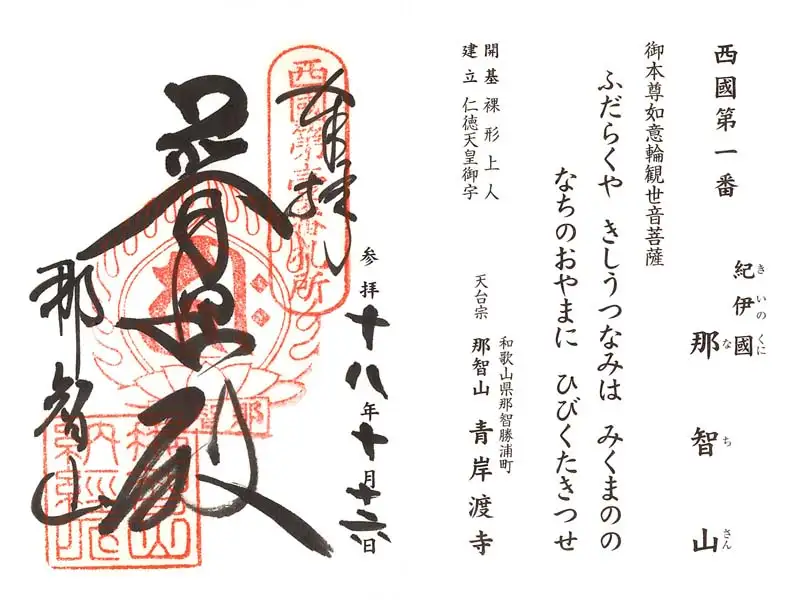 西國第一番
紀伊國
きいのくに
那智山
なちさん
御本尊如意輪観世音菩薩
ふだらくや　きしうつなみは　みくまのの
なちのおやまに　ひびくたきつせ
開基 裸形上人
建立 仁徳天皇御宇
和歌山県那智勝浦町
天台宗 那智山 青岸渡寺
参拝十八年十月十六日
奉拝
西國第壹番札所
普照殿
那智山